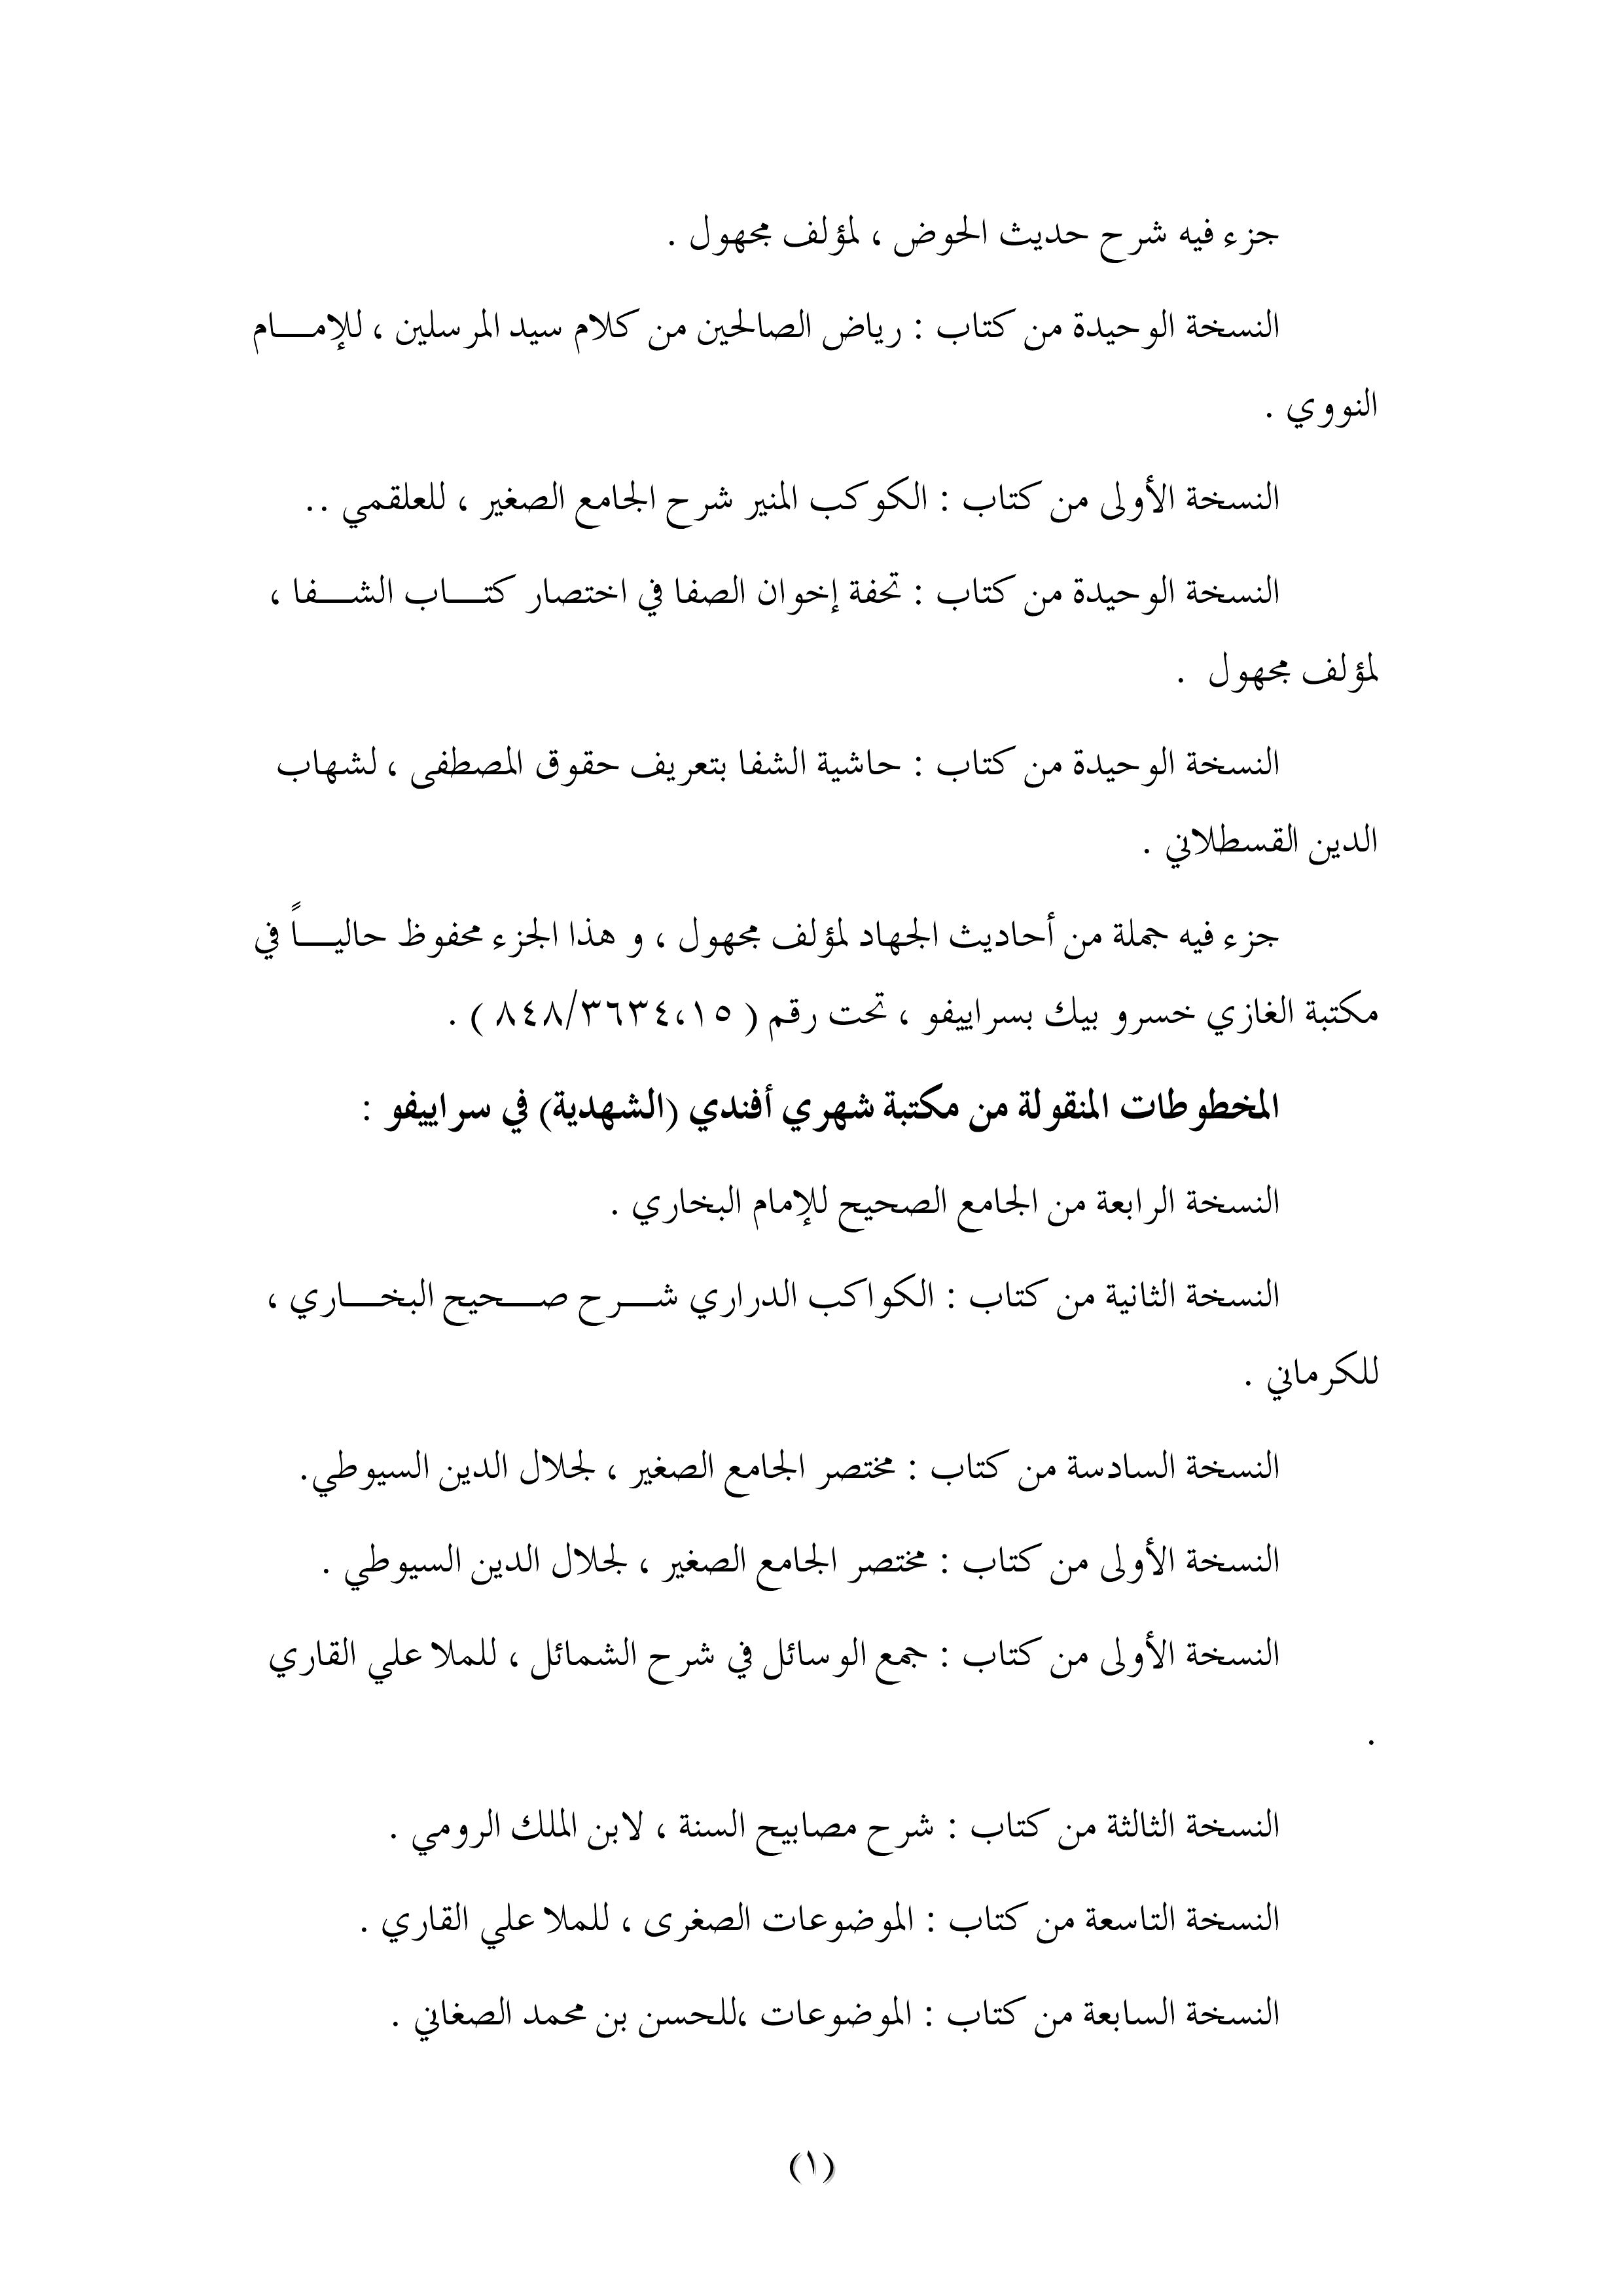 جزء فيه شرح حديث الحوض ، لمؤلف مجهول .
النسخة الوحيدة من كتاب : رياض الصالحين من كلام سيد المرسلين ، للإمـــام
النووي .
النسخة الأولى من كتاب : الكوكب المنير شرح الجامع الصغير ، للعلقمي ..
النسخة الوحيدة من كتاب : تحفة إخوان الصفا في اختصار كتـــاب الشـــفا ،
لمؤلف مجهول .
النسخة الوحيدة من كتاب : حاشية الشفا بتعريف حقوق المصطفى ، لشهاب
الدين القسطلاني .
جزء فيه جملة من أحاديث الجهاد لمؤلف مجهول ، و هذا الجزء محفوظ حاليـــاً في
مكتبة الغازي خسرو بيك بسراييفو ، تحت رقم ( ٨٤٨/٣٦٣٤،١٥ ) .
المخطوطات المنقولة من مكتبة شهري أفندي (الشهدية) في سراييفو :
النسخة الرابعة من الجامع الصحيح للإمام البخاري .
النسخة الثانية من كتاب : الكواكب الدراري شـــرح صـــحيح البخـــاري ،
للكرماني .
النسخة السادسة من كتاب : مختصر الجامع الصغير ، لجلال الدين السيوطي.
النسخة الأولى من كتاب : مختصر الجامع الصغير ، لجلال الدين السيوطي .
النسخة الأولى من كتاب : جمع الوسائل في شرح الشمائل ، للملا علي القاري
.
النسخة الثالثة من كتاب : شرح مصابيح السنة ، لابن الملك الرومي .
النسخة التاسعة من كتاب : الموضوعات الصغرى ، للملا علي القاري .
النسخة السابعة من كتاب : الموضوعات ،للحسن بن محمد الصغاني .
(١)